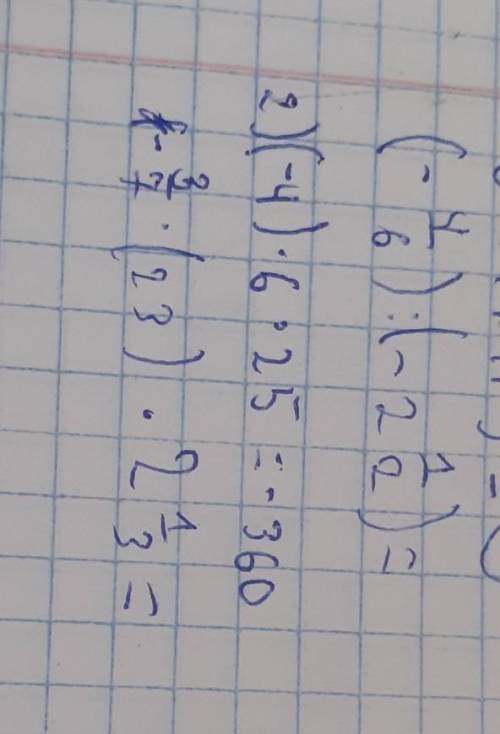 (- 4/6) : (- 2 1/2) =
2) (-4) · 6 · 25 = - 360
- 3/7 · (23) · 2 1/3 =